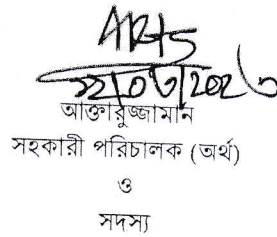 ২২/০৩/২০২৩
আক্তারুজ্জামান
সহকারী পরিচালক (অর্থ)
ও
সদস্য